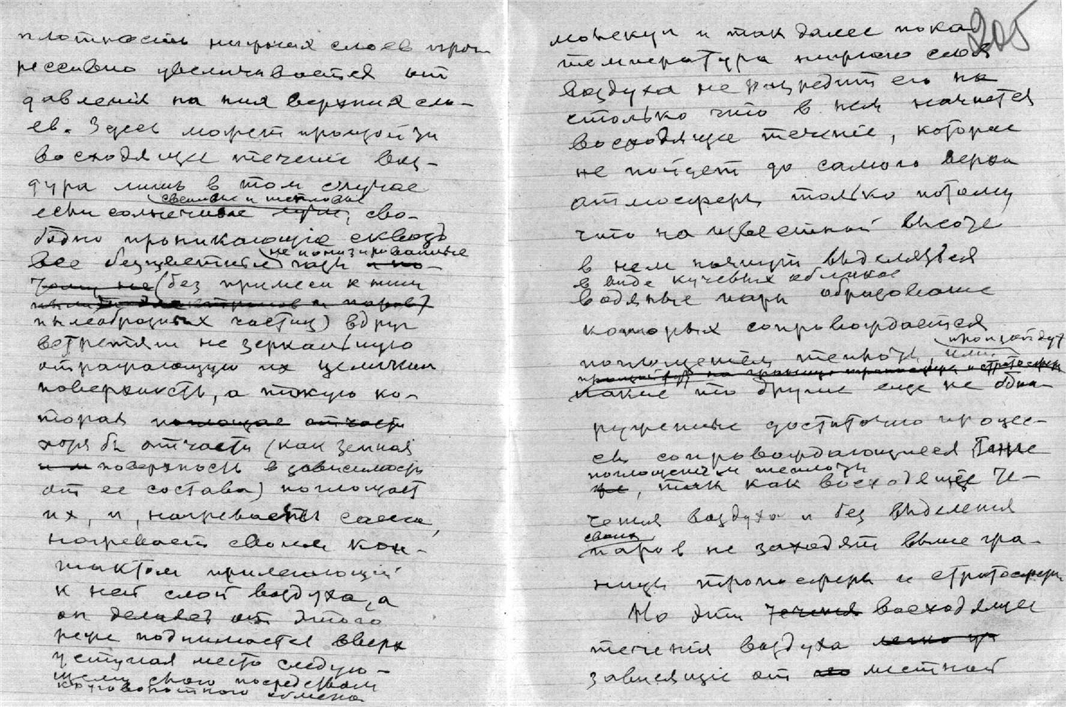 плотность нижних слоев прог
рессивно увеличивается от
давления на них верхних сло-
ев. Здесь может произойти
восходящее течение воз-
духа лишь в том случае
световые и тепловые
если солнечные лучи, сво-
бодно проникающие сквозь
не ионизированные
все безцветные газы
(без примеси к ним
пылеобразных частиц) вдруг
встретят не зеркальную
отражающую их целиком
поверхность, а такую ко-
торая поглощае отчасти
хотя бы отчасти (как земная
поверхность в зависимости
от ее состава) поглощает
их, и, нагреваясь сама,
нагревает своим кон-
тактом прилегающий
к ней слой воздуха, а
он делаясь от этого
реже поднимается вверх
уступая место следую-
щему своего посредством
круговоротного обмена
205
молекул и так далее пока
температура нижнего слоя
воздуха не разредит его на
столько что в нем начнется
восходящее течение, которое
не пойдет до самого верха
атмосферы только потому
что на известной высоте
в нем начнут выделяться
в виде кучевых облаков
водяные пары образование
которых сопровождается
произойдут
поглощением теплоты, или
какие то другие еще не обна-
руженные достаточно процес-
сы сопровождающиеся
поглощением теплоты
, так как восходящее те-
чения воздуха и без выделения
своих
паров не заходят выше гра-
ницы тропосферы и стратосферы
Но эти течения восходящие
течения воздуха
зависящие от местной